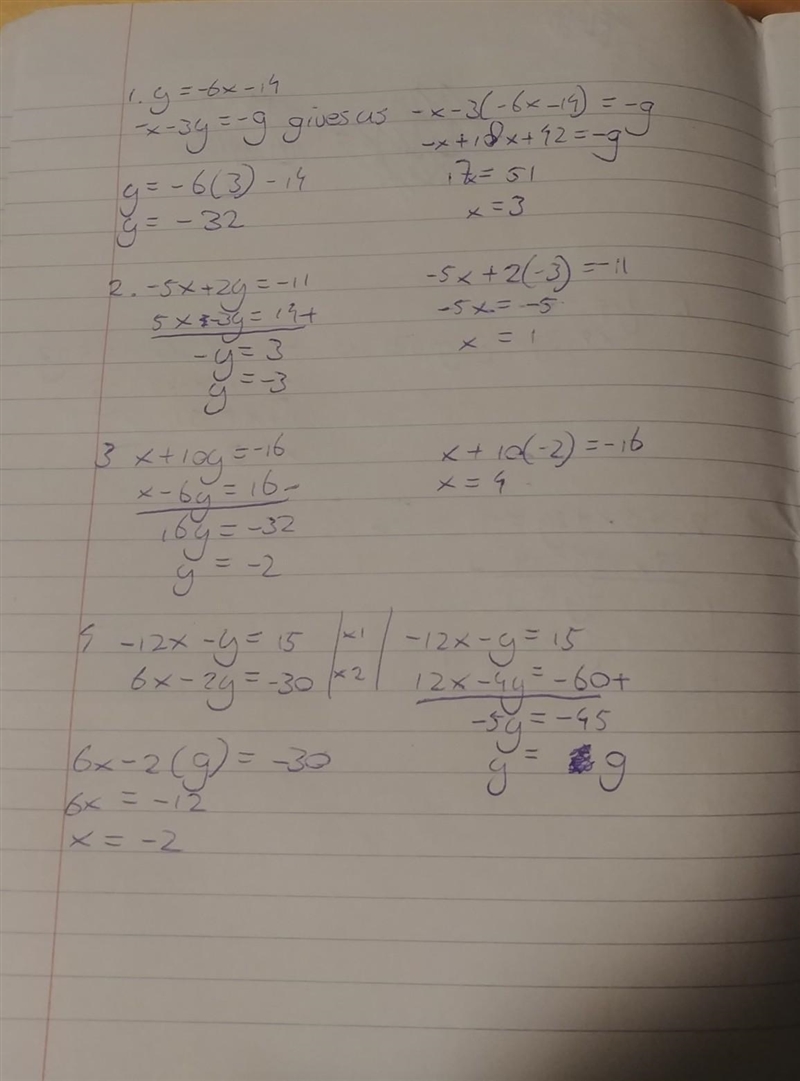 1. y = -6x - 14
-x - 3y = -9 gives us -x - 3(-6x - 14) = -9
-x + 18x + 42 = -9
y = -6(3) - 14
17x = 51
y = -32
x = 3
2. -5x + 2y = -11
5x - 3y = 14 +
-y = 3
y = -3
-5x + 2(-3) = -11
-5x = -5
x = 1
3 x + 10y = -16
x - 6y = 16 -
16y = -32
y = -2
x + 10(-2) = -16
x = 4
4 -12x - y = 15 | x1 | -12x - y = 15
6x - 2y = -30 | x2 | 12x - 4y = -60 +
-5y = -45
y = 9
6x - 2(9) = -30
6x = -12
x = -2